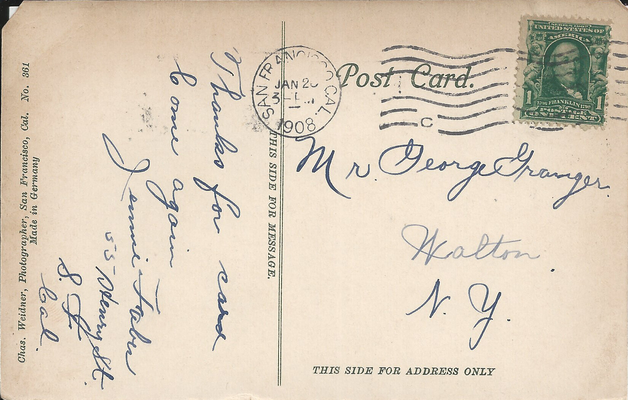 Chas. Weidner, Photographer, San Francisco, Cal. No. 361
Made in Germany
Thanks for card
Come again
Jennie Faber
55 Henry St.
S. F.
Cal.
THIS SIDE FOR MESSAGE.
Post Card.
SAN FRANCISCO, CAL.
JAN 2
1908
C
UNITED STATES OF
AMERICA
1 FRANKLIN 1
POSTAGE
ONE CENT
Mr. George Granger.
Walton.
N. Y.
THIS SIDE FOR ADDRESS ONLY